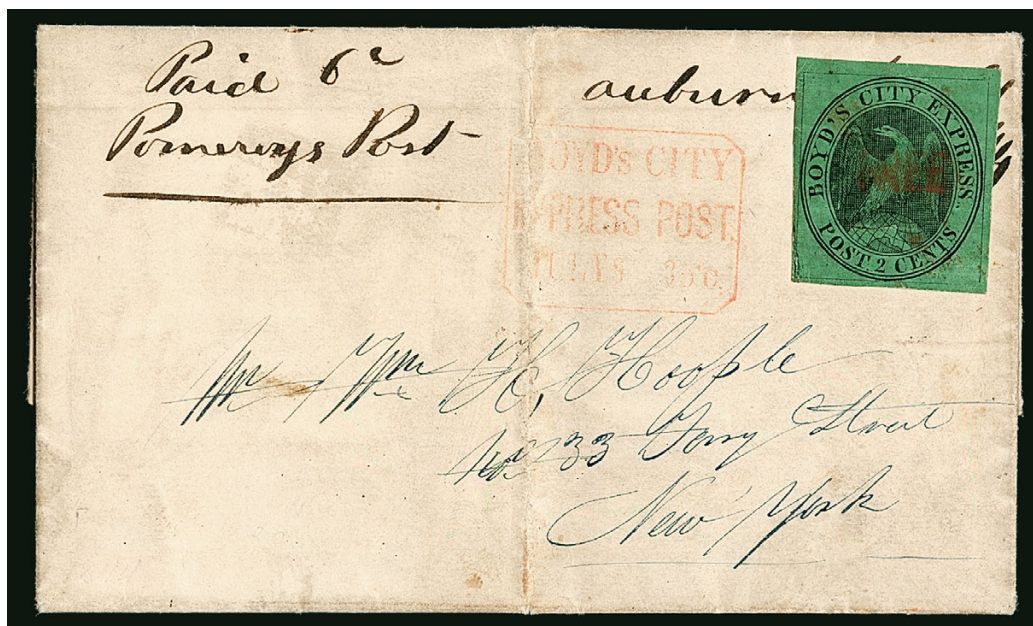 Paid 6c
Pomeroys Post
auburn
BOYD'S CITY EXPRESS
FREE
POST 2 CENTS
BOYD's CITY
EXPRESS POST.
JULY 8 3 o'c.
Mr Wm H, Hoople
No 33 Ferry Street
New York